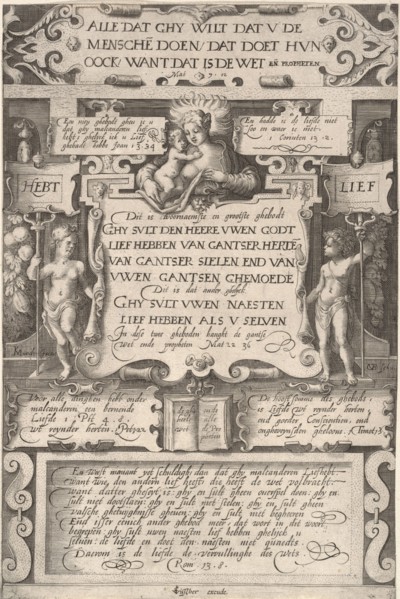 ALLE DAT GHY WILT DAT V DE
MENSCHĒ DOEN/ DAT DOET HVN
OOCK/ WANT DAT IS DE WET EÑ PROPHETEN
Mat 7. 12
Een nieu ghebodt gheve ic u
dat ghy malcanderen lief
hebt/ ghelijck ick u Lief
ghehadt hebbe Joan 13. 34
En hadde ic de liefde niet
soo en waer ic niet.
1 Corinten 13. 2.
HEBT
LIEF
Dit is doornaemste en grootste ghebodt
GHY SVLT DEN HEERE VWEN GODT
LIEF HEBBEN VAN GANTSER HERTE
VAN GANTSER SIELEN, END VAN
VWEN GANTSEN, GHEMOEDE
Dit is dat ander ghebot.
GHY SVLT VWEN NAESTEN
LIEF HEBBEN ALS V SELVEN
In dese twee gheboden hanght de gantse
wet ende propheten Mat 22 36
Voor alle dinghen hebt onder
malcanderen een bernende
Liefde 1 Pit 4. 8
wt reynder herten
De hooft somme des ghebods
is Liefde wt reynder herten
end goeder Conscientien, end
ongheveynsden gheloove. 1 Timot 1. 5
En weest niemant yet schuldich dan dat ghy malcanderen Liefhebt
want wie den anderen lief heeft die heeft de wet volbracht
want datter gheseyt is: ghy en sult gheen overspel doen: ghy en
sult niet dootslaen: ghy en sult niet stelen: ghy en sult gheen
valsche ghetuyghnisse gheven: ghy en sult niet begheeren
End isser eenich ander ghebod meer, dat wort in dit woort
begrepen ghy sult uwen naesten lief hebben ghelijck u
selven: de liefde en doet den naesten niet quaedts
Daerom is de liefde de vervullinghe des Wets
Rom 13. 8.